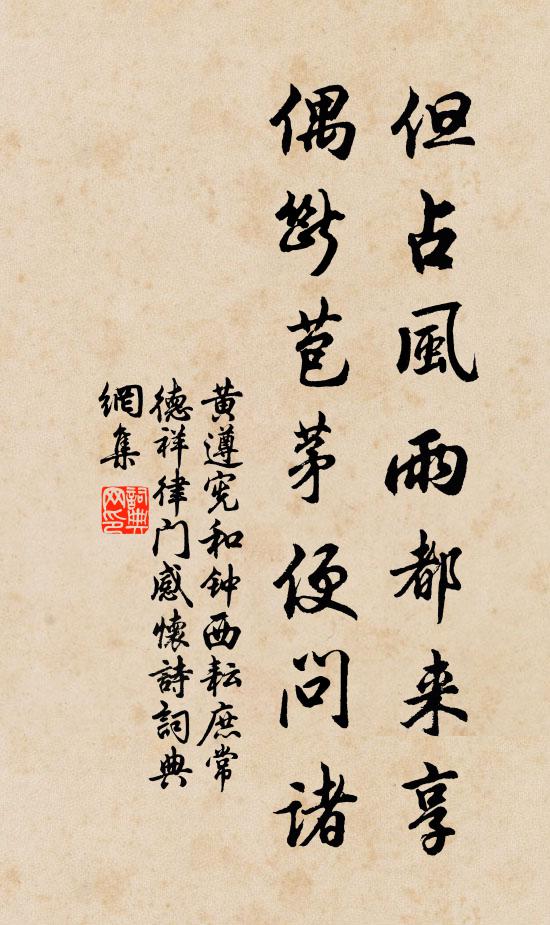 但占風雨都来享
偶斷苞茅便問諸
黄遵宪和钟西耘庶常
德祥律门感懷詩詞典
網集
詞典
网印